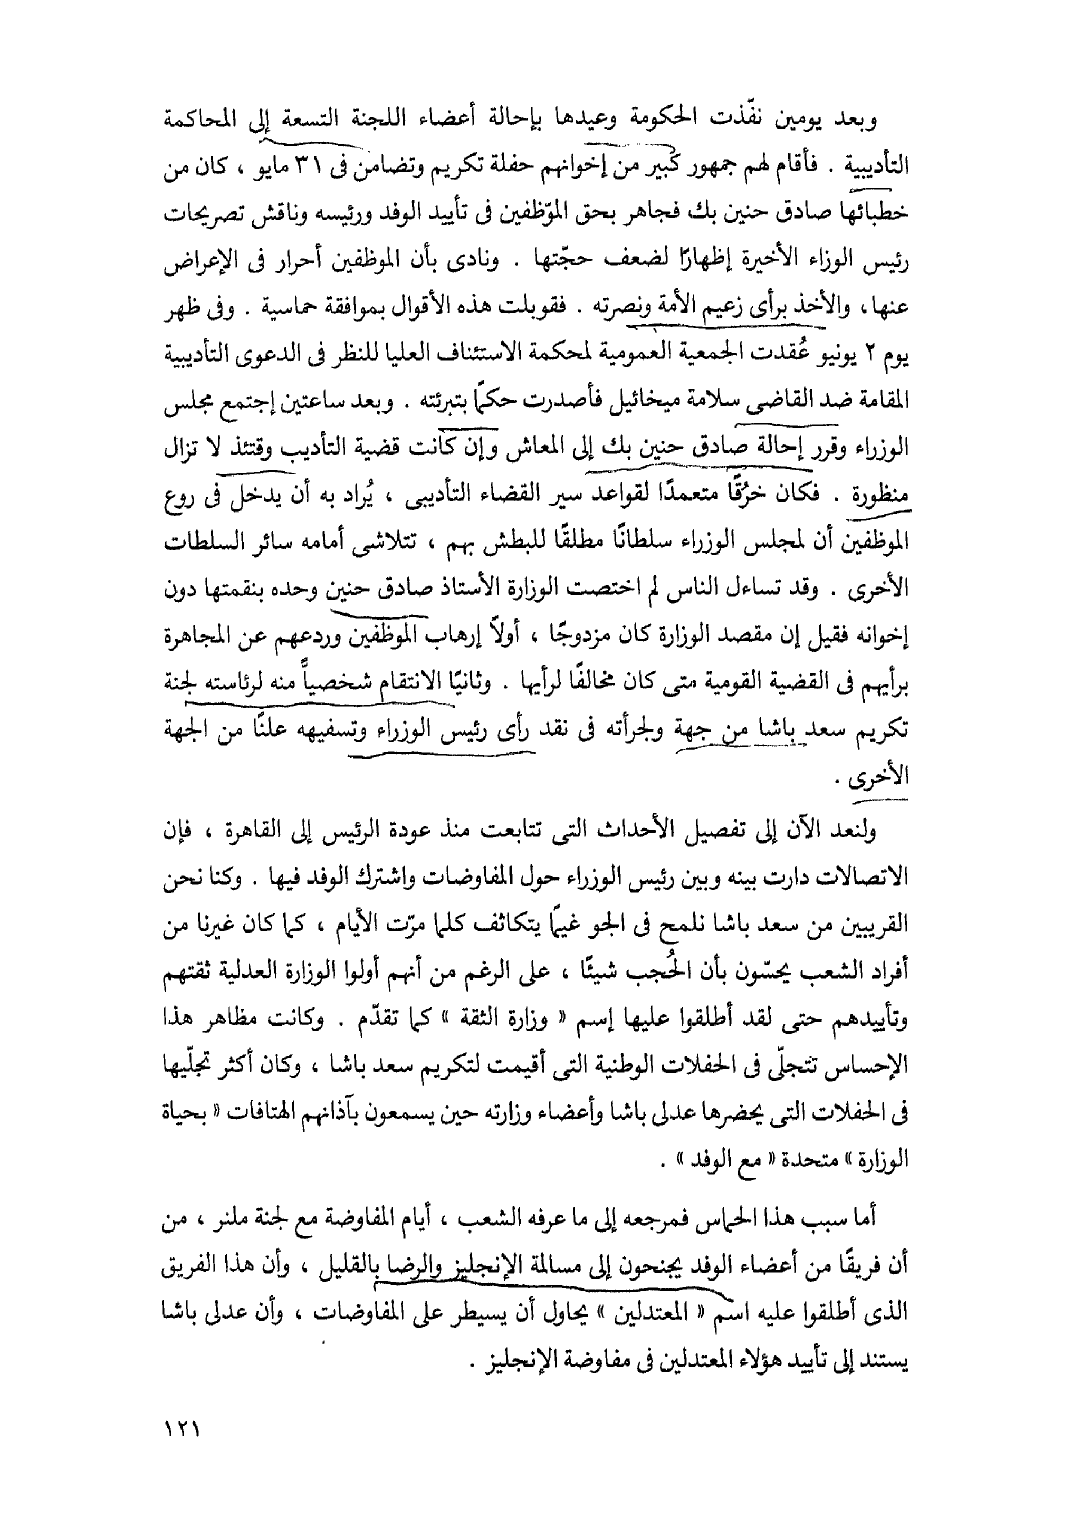 وبعد يومين نفّذت الحكومة وعيدها بإحالة أعضاء اللجنة التسعة إلى المحاكمة
التأديبية . فأقام لهم جمهور كبير من إخوانهم حفلة تكريم وتضامن فى ٣١ مايو ، كان من
خطبائها صادق حنين بك فجاهر بحق الموّظفين فى تأييد الوفد ورئيسه وناقش تصريحات
رئيس الوزراء الأخيرة إظهارًا لضعف حجّتها . ونادى بأن الموظفين أحرار فى الإعراض
عنها، والأخذ برأى زعيم الأمة ونصرته . فقوبلت هذه الأقوال بموافقة حماسية . وفى ظهر
يوم ٢ يونيو عُقدت الجمعية العمومية لمحكمة الاستئناف العليا للنظر فى الدعوى التأديبية
المقامة ضد القاضى سلامة ميخائيل فأصدرت حكمًا بتبرئته . وبعد ساعتين إجتمع مجلس
الوزراء وقرر إحالة صادق حنين بك إلى المعاش وإن كانت قضية التأديب وقتئذ لا تزال
منظورة . فكان خرْقًا متعمدًا لقواعد سير القضاء التأديبى ، يُراد به أن يدخل فى روع
الموظفين أن لمجلس الوزراء سلطانًا مطلقًا للبطش بهم ، تتلاشى أمامه سائر السلطات
الأخرى . وقد تساءل الناس لم اختصت الوزارة الأستاذ صادق حنين وحده بنقمتها دون
إخوانه فقيل إن مقصد الوزارة كان مزدوجًا ، أولاً إرهاب الموظفين وردعهم عن المجاهرة
برأيهم فى القضية القومية متى كان مخالفًا لرأيها . وثانيًا الانتقام شخصياً منه لرئاسته لجنة
تكريم سعد باشا من جهة ولجرأته فى نقد رأى رئيس الوزراء وتسفيهه علنًا من الجهة
الأخرى .
ولنعد الآن إلى تفصيل الأحداث التى تتابعت منذ عودة الرئيس إلى القاهرة ، فإن
الاتصالات دارت بينه وبين رئيس الوزراء حول المفاوضات واشترك الوفد فيها . وكنا نحن
القريبين من سعد باشا نلمح فى الجو غيمًا يتكاثف كلما مرّت الأيام ، كما كان غيرنا من
أفراد الشعب يحسّون بأن الحُجب شيئًا ، على الرغم من أنهم أولوا الوزارة العدلية ثقتهم
وتأييدهم حتى لقد أطلقوا عليها إسم « وزارة الثقة » كما تقدّم . وكانت مظاهر هذا
الإحساس تتجلّى فى الحفلات الوطنية التى أقيمت لتكريم سعد باشا ، وكان أكثر تجلّيها
فى الحفلات التى يحضرها عدلى باشا وأعضاء وزارته حين يسمعون بآذانهم الهتافات « بحياة
الوزارة » متحدة « مع الوفد » .
أما سبب هذا الحماس فمرجعه إلى ما عرفه الشعب ، أيام المفاوضة مع لجنة ملنر ، من
أن فريقًا من أعضاء الوفد يجنحون إلى مسالمة الإنجليز والرضا بالقليل ، وأن هذا الفريق
الذى أطلقوا عليه اسم « المعتدلين » يحاول أن يسيطر على المفاوضات ، وأن عدلى باشا
يستند إلى تأييد هؤلاء المعتدلين فى مفاوضة الإنجليز .
١٢١